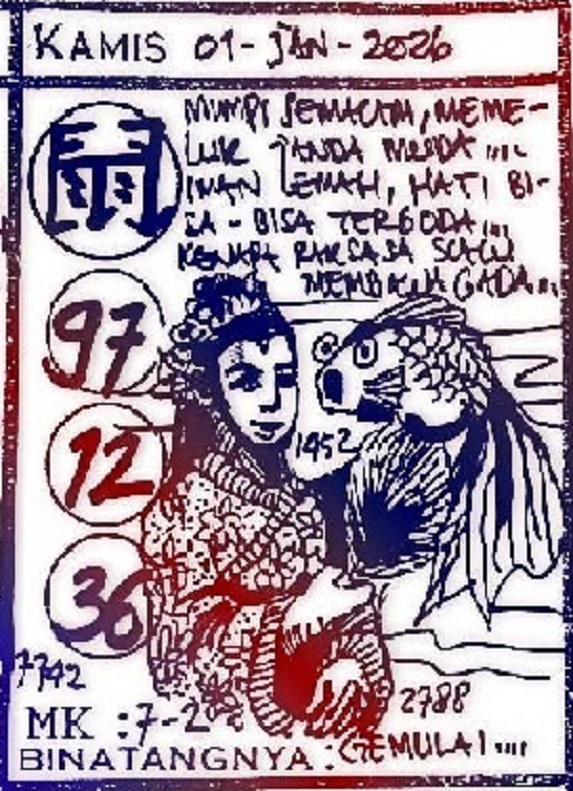 KAMIS 01-JAN-2026
MIMPI SEMALAM, MEME-
LUK JANDA MUDA ....
IMAN LEMAH, HATI BI-
SA-BISA TERGODA...
KENAPA RAKSASA SLALU
MEMBAWA GADA...
97
12
1452
36
7742
2788
MK : 7-2
BINATANGNYA : GEMULAI ....